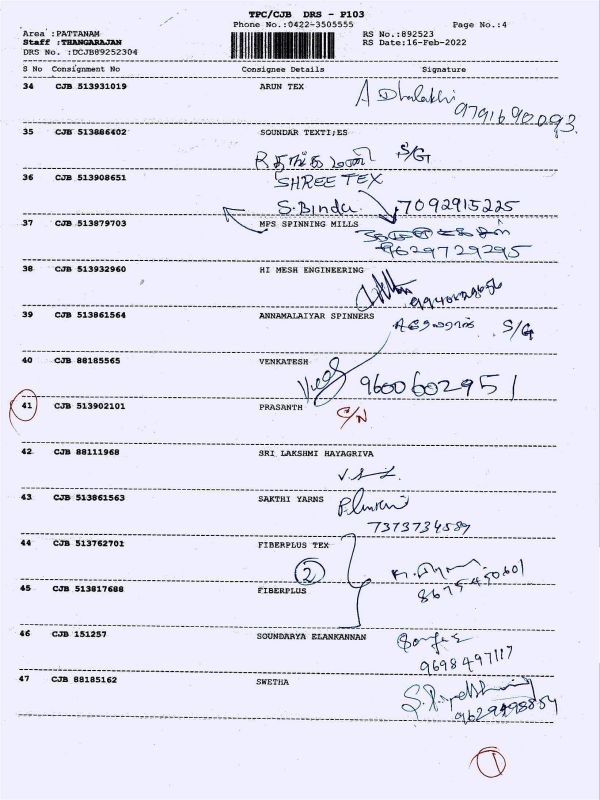 TPC/CJB DRS - P103
Phone No.:0422-3505555 Page No.:4
Area :PATTANAM RS No.:892523
Staff :THANGARAJAN RS Date:16-Feb-2022
DRS No. :DCJB89252304
S No Consignment No Consignee Details Signature
34 CJB 513931019 ARUN TEX
9791690093
35 CJB 513886402 SOUNDAR TEXTI;ES
S/G
36 CJB 513908651 SHREE TEX
S. Bindu 7092915225
37 CJB 513879703 MPS SPINNING MILLS
9629729295
38 CJB 513932960 HI MESH ENGINEERING
39 CJB 513861564 ANNAMALAIYAR SPINNERS
S/G
40 CJB 88185565 VENKATESH
9600602951
41 CJB 513902101 PRASANTH
C/N
42 CJB 88111968 SRI LAKSHMI HAYAGRIVA
43 CJB 513861563 SAKTHI YARNS
7373734589
44 CJB 513762701 FIBERPLUS TEX
2
45 CJB 513817688 FIBERPLUS
46 CJB 151257 SOUNDARYA ELANKANNAN
9698497117
47 CJB 88185162 SWETHA
1